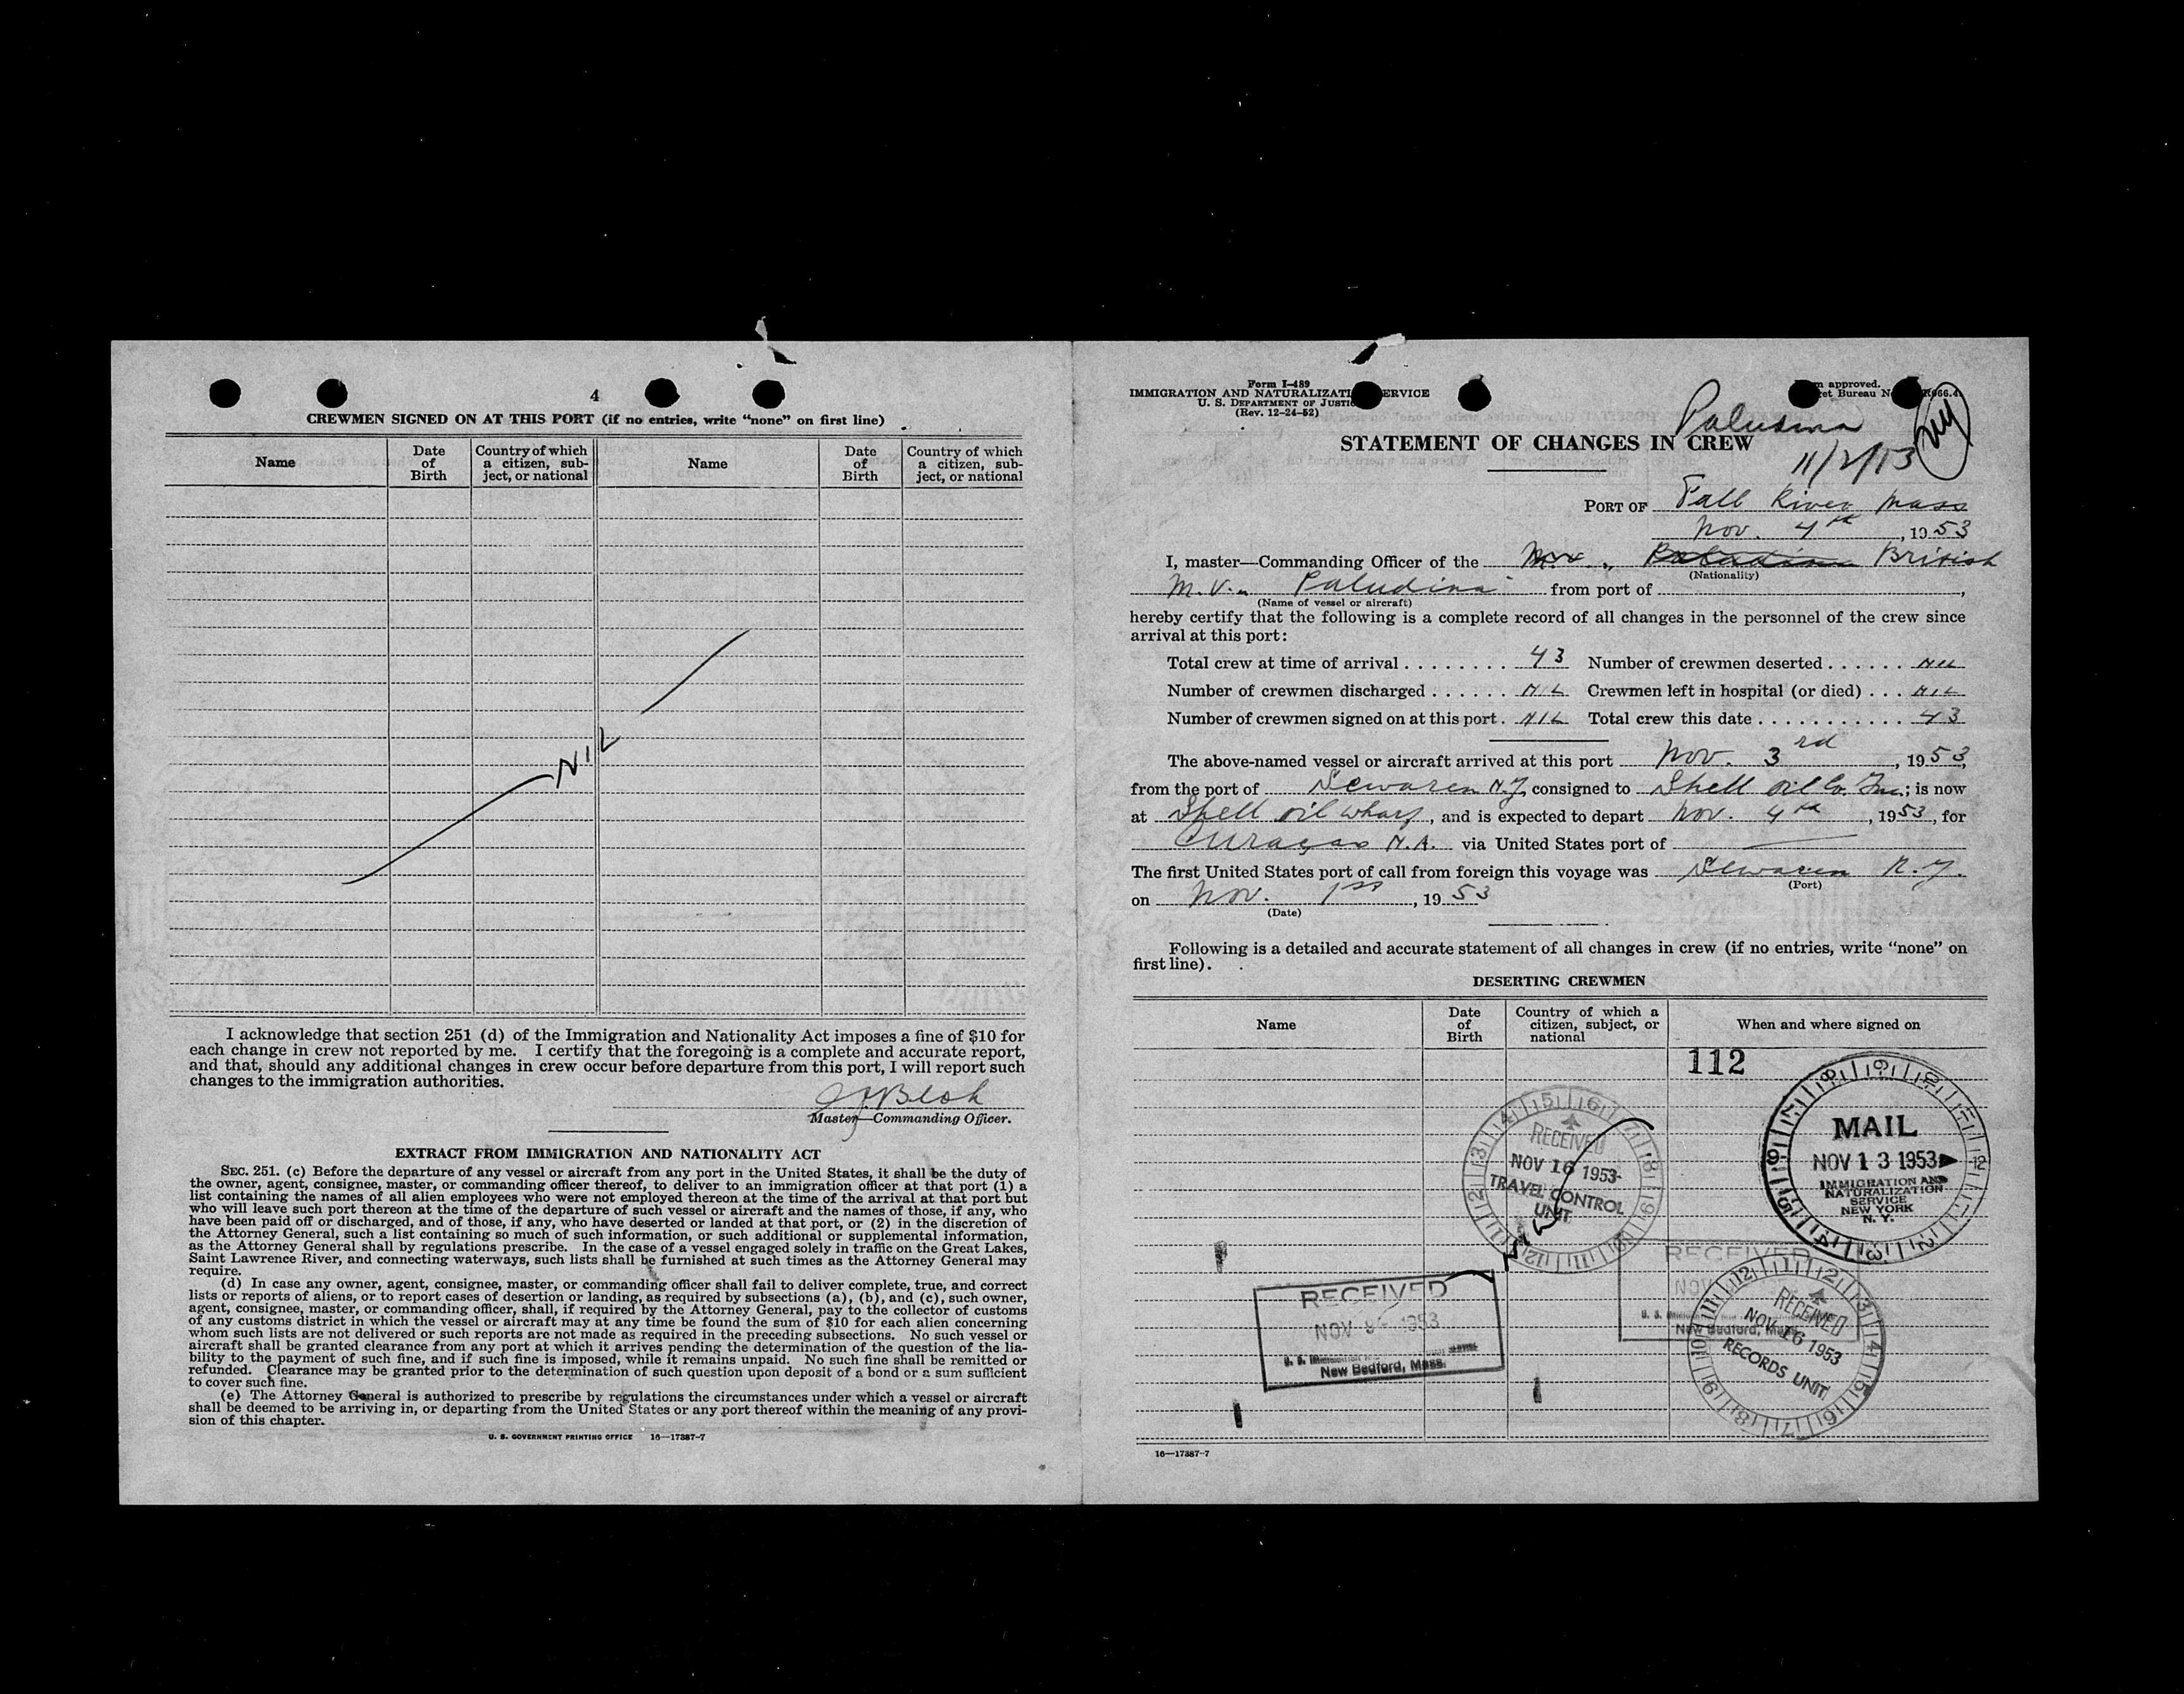 4
CREWMEN SIGNED ON AT THIS PORT (if no entries, write “none” on first line)
Name
Date of Birth
Country of which a citizen, subject, or national
Name
Date of Birth
Country of which a citizen, subject, or national
NIL
I acknowledge that section 251 (d) of the Immigration and Nationality Act imposes a fine of $10 for
each change in crew not reported by me. I certify that the foregoing is a complete and accurate report,
and that, should any additional changes in crew occur before departure from this port, I will report such
changes to the immigration authorities.
Master—Commanding Officer.
EXTRACT FROM IMMIGRATION AND NATIONALITY ACT
SEC. 251. (c) Before the departure of any vessel or aircraft from any port in the United States, it shall be the duty of
the owner, agent, consignee, master, or commanding officer thereof, to deliver to an immigration officer at that port (1) a
list containing the names of all alien employees who were not employed thereon at the time of the arrival at that port but
who will leave such port thereon at the time of the departure of such vessel or aircraft and the names of those, if any, who
have been paid off or discharged, and of those, if any, who have deserted or landed at that port, or (2) in the discretion of
the Attorney General, such a list containing so much of such information, or such additional or supplemental information,
as the Attorney General shall by regulations prescribe. In the case of a vessel engaged solely in traffic on the Great Lakes,
Saint Lawrence River, and connecting waterways, such lists shall be furnished at such times as the Attorney General may
require.
(d) In case any owner, agent, consignee, master, or commanding officer shall fail to deliver complete, true, and correct
lists or reports of aliens, or to report cases of desertion or landing, as required by subsections (a), (b), and (c), such owner,
agent, consignee, master, or commanding officer, shall, if required by the Attorney General, pay to the collector of customs
of any customs district in which the vessel or aircraft may at any time be found the sum of $10 for each alien concerning
whom such lists are not delivered or such reports are not made as required in the preceding subsections. No such vessel or
aircraft shall be granted clearance from any port at which it arrives pending the determination of the question of the lia-
bility to the payment of such fine, and if such fine is imposed, while it remains unpaid. No such fine shall be remitted or
refunded. Clearance may be granted prior to the determination of such question upon deposit of a bond or a sum sufficient
to cover such fine.
(e) The Attorney General is authorized to prescribe by regulations the circumstances under which a vessel or aircraft
shall be deemed to be arriving in, or departing from the United States or any port thereof within the meaning of any provi-
sion of this chapter.
U. S. GOVERNMENT PRINTING OFFICE 16—17387-7
Form I-489
IMMIGRATION AND NATURALIZATI ERVICE
U. S. DEPARTMENT OF JUSTIC
(Rev. 12-24-52)
approved.
et Bureau N
Paludina
STATEMENT OF CHANGES IN CREW
PORT OF Fall River Mass
Nov. 4th, 1953
I, master—Commanding Officer of the British
(Nationality)
M.V. "Paludina" from port of ,
(Name of vessel or aircraft)
hereby certify that the following is a complete record of all changes in the personnel of the crew since
arrival at this port:
Total crew at time of arrival . . . . . . . . 43 Number of crewmen deserted . . . . . . NIL
Number of crewmen discharged . . . . . . NIL Crewmen left in hospital (or died) . . . NIL
Number of crewmen signed on at this port . NIL Total crew this date . . . . . . . . . . . . 43
The above-named vessel or aircraft arrived at this port Nov. 3rd, 1953,
from the port of Sewaren N.J., consigned to Shell Oil Co. Inc.; is now
at Shell oil wharf, and is expected to depart Nov. 4th, 1953, for
Curaçao N.A. via United States port of —
The first United States port of call from foreign this voyage was Sewaren N.J.
(Port)
on Nov. 1st, 1953
(Date)
Following is a detailed and accurate statement of all changes in crew (if no entries, write “none” on
first line).
DESERTING CREWMEN
Name
Date of Birth
Country of which a citizen, subject, or national
When and where signed on
112
MAIL
NOV 13 1953
IMMIGRATION AND
NATURALIZATION
SERVICE
NEW YORK
N. Y.
RECEIVED
NOV 16 1953
TRAVEL CONTROL
UNIT
NIL
RECEIVED
NOV 1953
New Bedford, Mass.
RECEIVED
NOV
New Bedford, Mass.
RECEIVED
NOV 16 1953
RECORDS UNIT
16—17387-7